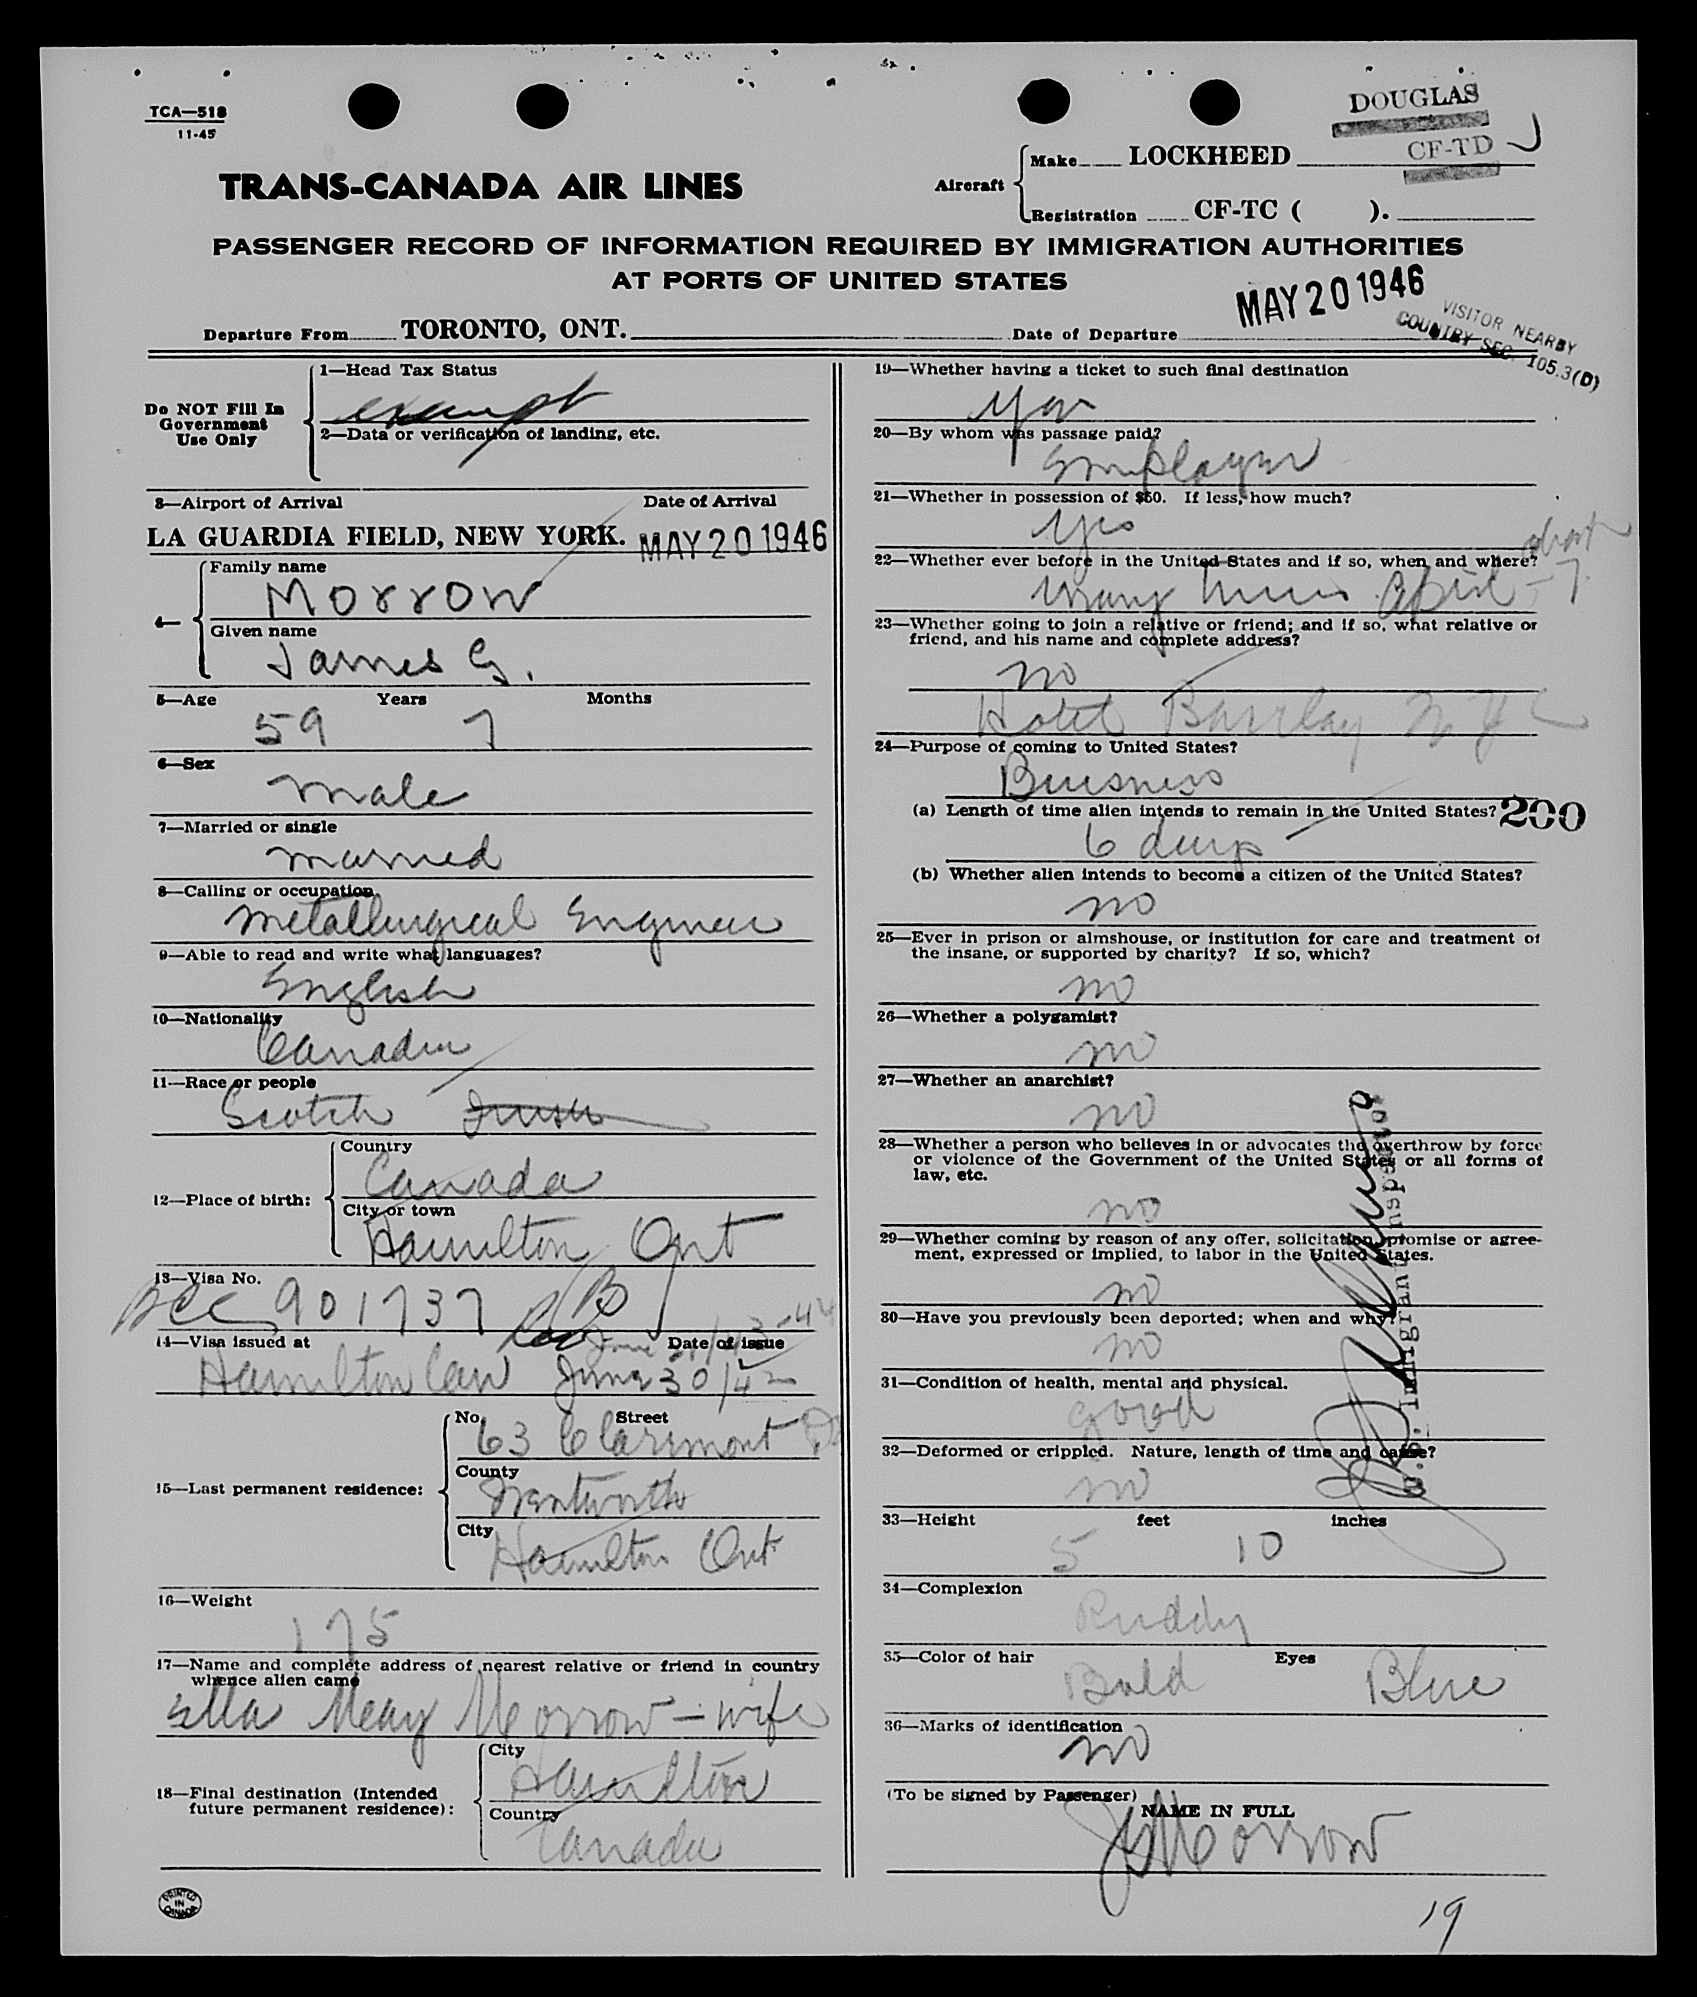 TCA—518
11-45
DOUGLAS
CF-TD
TRANS-CANADA AIR LINES
Aircraft
Make LOCKHEED
Registration CF-TC ( ).
PASSENGER RECORD OF INFORMATION REQUIRED BY IMMIGRATION AUTHORITIES
AT PORTS OF UNITED STATES
Departure From TORONTO, ONT.
Date of Departure MAY 20 1946
VISITOR NEARBY
COUNTRY SEC. 105.3(D)
Do NOT Fill In
Government
Use Only
1—Head Tax Status
exempt
2—Data or verification of landing, etc.
3—Airport of Arrival Date of Arrival
LA GUARDIA FIELD, NEW YORK. MAY 20 1946
4—
Family name
Morrow
Given name
James G.
5—Age Years Months
59 7
6—Sex
Male
7—Married or single
Married
8—Calling or occupation
Metallurgical Engineer
9—Able to read and write what languages?
English
10—Nationality
Canadian
11—Race or people
Scotch Irish
12—Place of birth:
Country
Canada
City or town
Hamilton Ont
13—Visa No.
BCC 901737
14—Visa issued at Date of issue
Hamilton Can June 30/42
15—Last permanent residence:
No. Street
63 Claremont Dr
County
Wentworth
City
Hamilton Ont
16—Weight
175
17—Name and complete address of nearest relative or friend in country
whence alien came
Ella Meay Morrow - wife
18—Final destination (Intended
future permanent residence):
City
Hamilton
Country
Canada
PRINTED
IN
CANADA
19—Whether having a ticket to such final destination
Yes
20—By whom was passage paid?
Employer
21—Whether in possession of $50. If less, how much?
Yes
22—Whether ever before in the United States and if so, when and where?
Many times April - 7
23—Whether going to join a relative or friend; and if so, what relative or
friend, and his name and complete address?
no
Hotel Barclay N Y C
24—Purpose of coming to United States?
Buisness
(a) Length of time alien intends to remain in the United States? 200
6 days
(b) Whether alien intends to become a citizen of the United States?
no
25—Ever in prison or almshouse, or institution for care and treatment of
the insane, or supported by charity? If so, which?
no
26—Whether a polygamist?
no
27—Whether an anarchist?
no
28—Whether a person who believes in or advocates the overthrow by force
or violence of the Government of the United States or all forms of
law, etc.
no
29—Whether coming by reason of any offer, solicitation, promise or agree-
ment, expressed or implied, to labor in the United States.
no
30—Have you previously been deported; when and why?
no
31—Condition of health, mental and physical.
good
32—Deformed or crippled. Nature, length of time and cause?
no
U.S. Immigrant Inspector
33—Height feet inches
5 10
34—Complexion
Ruddy
35—Color of hair Eyes
Bald Blue
36—Marks of identification
no
(To be signed by Passenger)
NAME IN FULL
JG Morrow
19